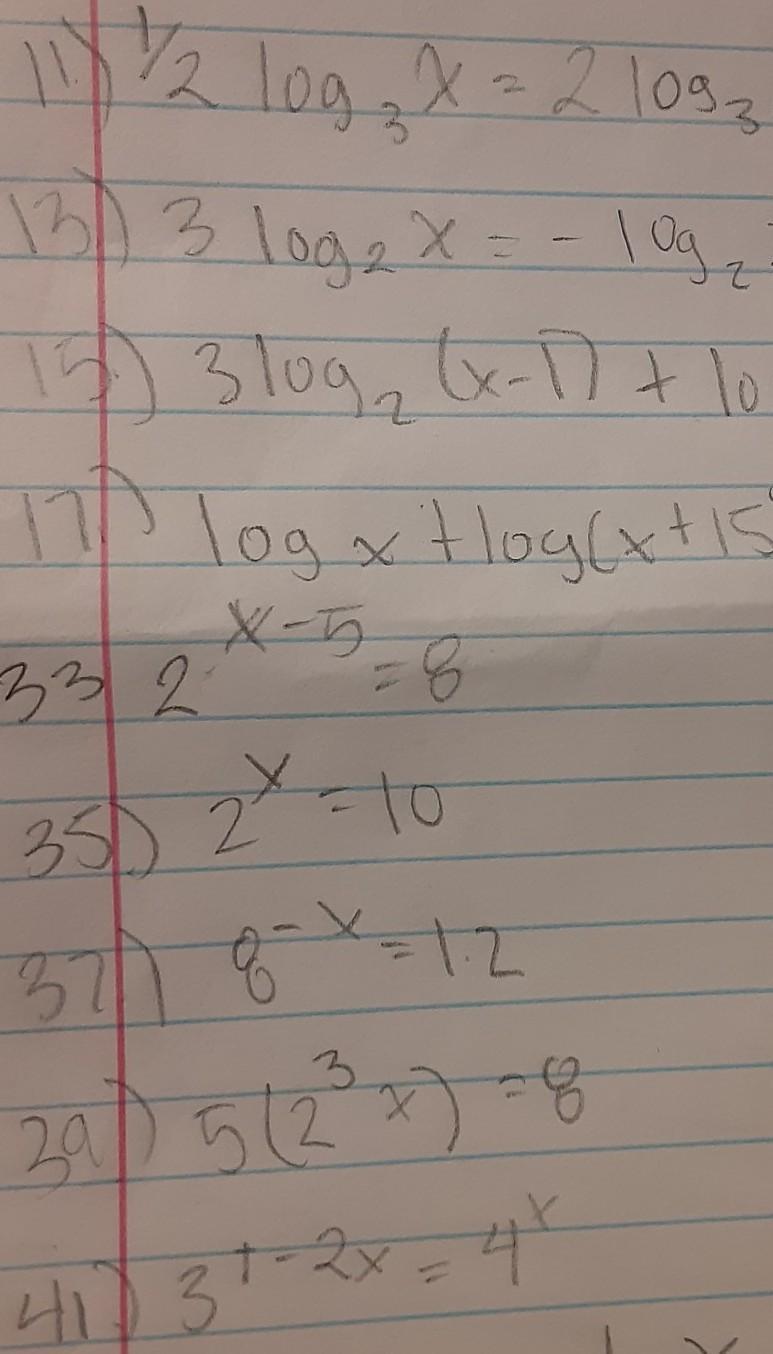 11.) 1/2 log₃ x = 2 log₃
13) 3 log₂ x = - log₂
15.) 3 log₂ (x-1) + lo
17.) log x + log(x + 15
33 2^(x-5) = 8
35.) 2^x = 10
37) 8^(-x) = 1.2
39) 5(2³ x) = 8
41) 3^(1-2x) = 4^x